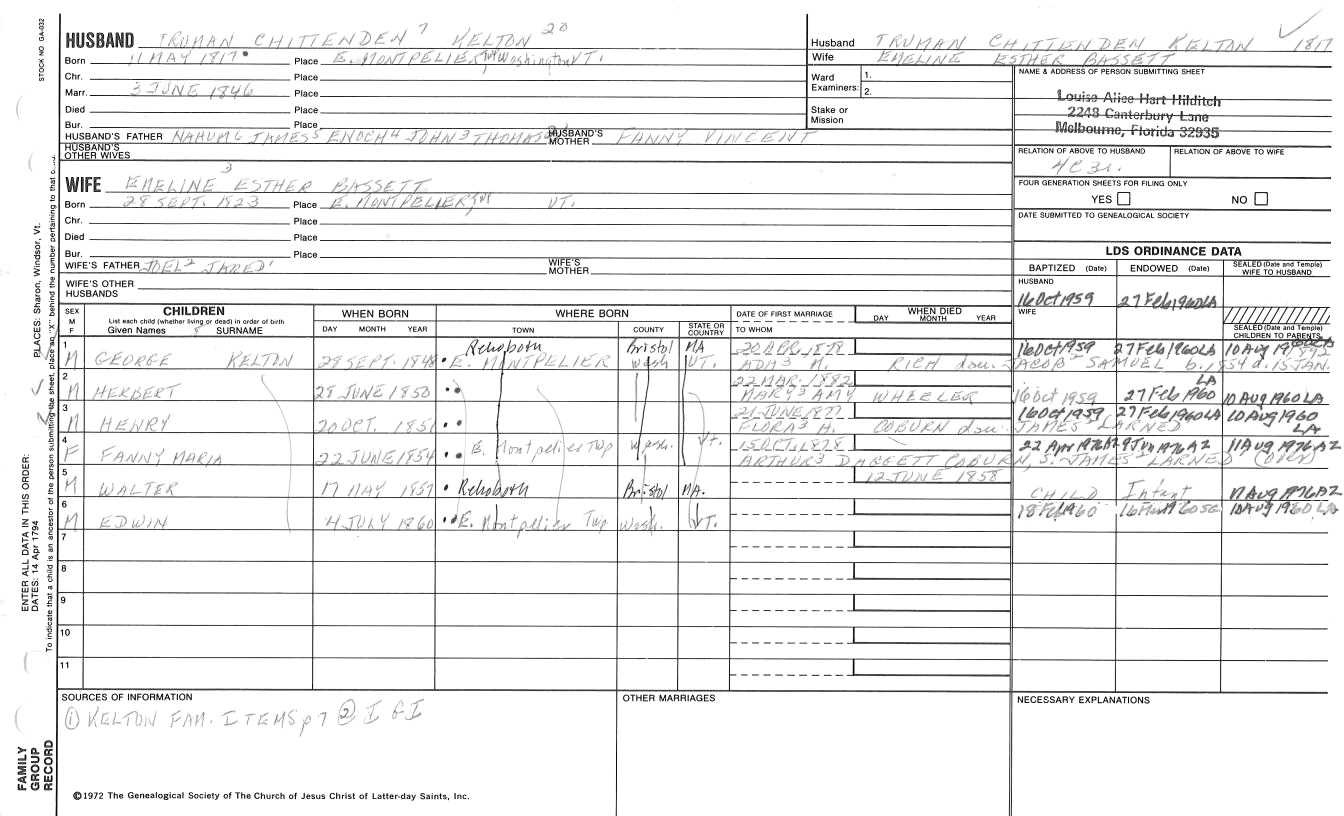 STOCK NO. GA-032
HUSBAND TRUMAN CHITTENDEN 7 KELTON 20
Born 11 MAY 1817 Place E. MONTPELIER, Washington VT.
Chr. Place
Marr. 3 JUNE 1846 Place
Died Place
Bur. Place
HUSBAND'S FATHER NAHUM 6 JAMES 5 ENOCH 4 JOHN 3 THOMAS HUSBAND'S MOTHER FANNY VINCENT
HUSBAND'S OTHER WIVES
WIFE EMELINE 3 ESTHER BASSETT
Born 28 SEPT. 1823 Place E. MONTPELIER, VT.
Chr. Place
Died Place
Bur. Place
WIFE'S FATHER JOEL 2 JARED 1 WIFE'S MOTHER
WIFE'S OTHER HUSBANDS
Husband TRUMAN CHITTENDEN KELTON 1817
Wife EMELINE ESTHER BASSETT
Ward Examiners: 1. 2.
Stake or Mission
NAME & ADDRESS OF PERSON SUBMITTING SHEET
Louise Alice Hart Hilditch
2248 Canterbury Lane
Melbourne, Florida 32935
RELATION OF ABOVE TO HUSBAND RELATION OF ABOVE TO WIFE
4C3r.
FOUR GENERATION SHEETS FOR FILING ONLY
YES NO
DATE SUBMITTED TO GENEALOGICAL SOCIETY
LDS ORDINANCE DATA
BAPTIZED (Date) ENDOWED (Date) SEALED (Date and Temple) WIFE TO HUSBAND
HUSBAND
16 Oct 1959 27 Feb 1960 LA
WIFE
SEALED (Date and Temple) CHILDREN TO PARENTS
SEX M F CHILDREN List each child (whether living or dead) in order of birth Given Names SURNAME
WHEN BORN DAY MONTH YEAR
WHERE BORN TOWN COUNTY STATE OR COUNTRY
DATE OF FIRST MARRIAGE TO WHOM
WHEN DIED DAY MONTH YEAR
1 Rehoboth Bristol MA 20 APR. 1878 16 Oct 1959 27 Feb 1960 LA 10 Aug
M GEORGE KELTON 29 SEPT. 1848 E. MONTPELIER Wash VT. ADA 3 M. RICH dau. JACOB SAMUEL b. 1854 d. 15 JAN. 1892
2 22 MAR. 1882 LA
M HERBERT 28 JUNE 1850 MARY 3 AMY WHEELER 16 Oct 1959 27 Feb 1960 10 AUG 1960 LA
3 21 JUNE 1877 16 Oct 1959 27 Feb 1960 LA 10 Aug 1960 LA
M HENRY 20 OCT. 1851 FLORA 3 H. COBURN dau. JAMES LARNED
4 E. Montpelier Twp Wash. Vt. 15 OCT. 1878 22 Apr 1976 AZ 9 Jun 1976 AZ 11 AUG 1976 AZ
F FANNY MARIA 22 JUNE 1854 ARTHUR 3 DAGGETT COBURN, S. JAMES LARNED (OVER)
5 12 JUNE 1858
M WALTER 17 MAY 1857 Rehoboth Bristol MA. CHILD Infant 17 AUG 1976 AZ
6
M EDWIN 4 JULY 1860 E. Montpelier Twp Wash. VT. 18 Feb 1960 16 Mar 1960 SG 10 AUG 1960 LA
7
8
9
10
11
SOURCES OF INFORMATION
① KELTON FAM. ITEMS p 7 ② I G I
OTHER MARRIAGES
NECESSARY EXPLANATIONS
©1972 The Genealogical Society of The Church of Jesus Christ of Latter-day Saints, Inc.
FAMILY GROUP RECORD
ENTER ALL DATA IN THIS ORDER:
DATES: 14 Apr 1794
PLACES: Sharon, Windsor, Vt.
To indicate that a child is an ancestor of the person submitting the sheet, place an "X" behind the number pertaining to that